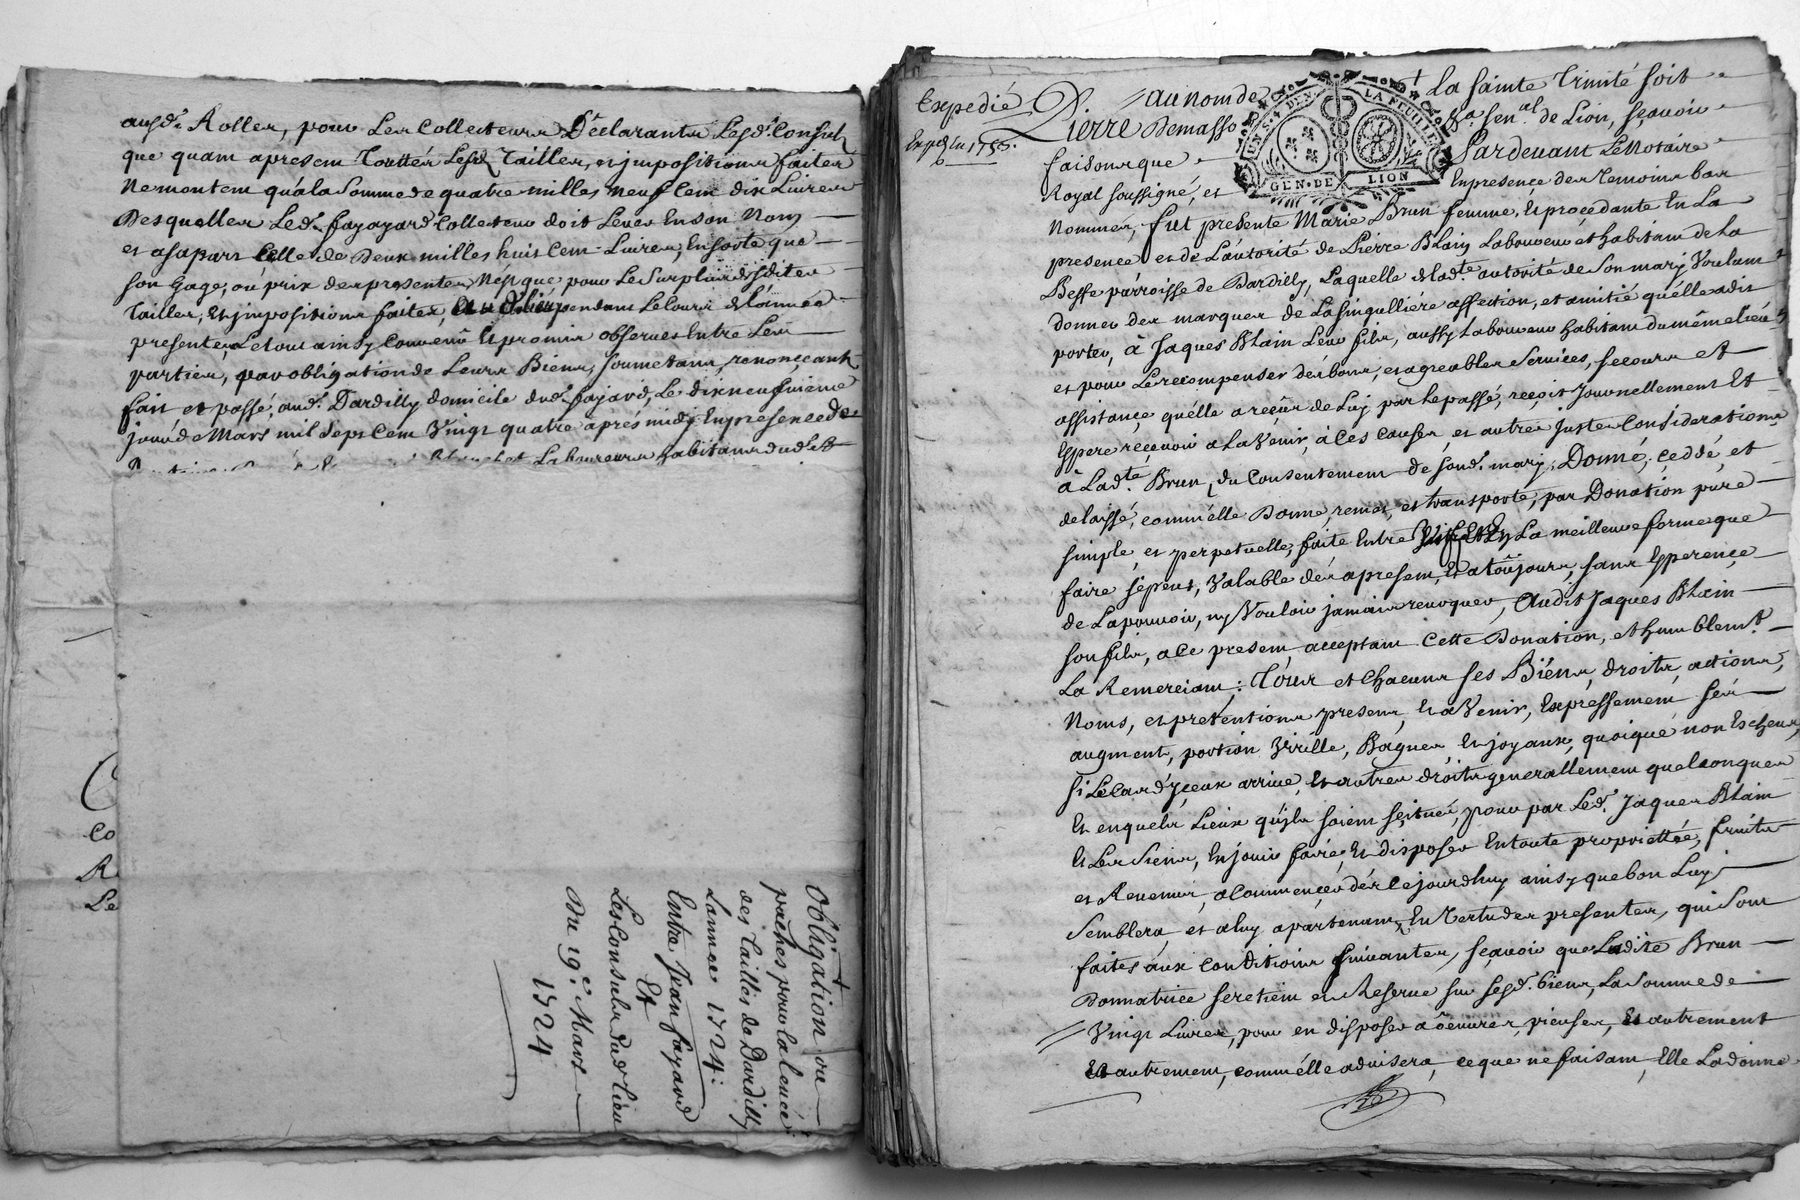 ausd. Rolles, pour les Collecteurs Déclarants Lesd. Consulz
que quant apresent Touttes Lesd. Tailles, et jmpositions faites
Nemontent quala Somme de quatre milles neuf Cent dix Livres
Desquelles Led. fayoyard Collecteur doit Lever En son Nom
et asapart Celle de Deux milles huit Cent Livres, Ensorte que
son gage, ou prix des presentes N'est que pour Le Surplus desdites
Tailles, et jmpositions faites, pendant Le Cours de L'année
presente, Letout ainsy Convenu Et promis observer Entre Les
parties, par obligation de Leurs Biens, soumetans, renonçeants
fait et passé, aud. Dardilly domicile dud. fayard, Le dixneufvieme
jour de Mars mil Sept Cent Vingt quatre aprés midy En presence de
Laboureurs habitans dud.
C
Co
R
Le
Obligation ou
paches pour la levée
des Tailles de Dardilly
L'annee 1724.
Entre Jean fayard
Et
Les Consuls dud. Lieu
Du 19e. Mars
1724
Expedié
Exped. en 1755.
au nom de La Sainte Trinité soit
Pierre Demasso Sen.al de Lion, sçavoir
faisons que Pardevant Le Notaire
Royal soussigné, et En presence des Temoins bas
GEN. DE LION
Nommés, fut presente Marie Brun femme, Et procedante En La
presence et de L'autorité de Pierre Blain Laboureur et habitant de La
Besse parroisse de Dardilly, Laquelle de lad.te autorité de Son mary Voulant
donner des marques de La singulliére affection, et amitié qu'elle a dit
porter, à Jaques Blain Leur fils, aussy Laboureur habitant du même Lieu
et pour Le recompenser des bons, et agreables Services, secours et
assistance qu'elle a reçûs de Luy par Le passé, reçoit Journellement Et
Espere recevoir a La Venir, à Ces Causes, et autres Justes Considerations
à Lad.te Brun, du Consentement de Sond. mary, Donné, ceddé, et
delaissé, comm'elle Donne, remet, et transporte, par Donation pure
simple, et perpetuelle, faite Entre Vifs Et En La meilleure forme que
faire se peut, Valable dés apresent, Et a toûjours, sans Esperençe
de La pouvoir, ny Vouloir jamais revoquer, Audit Jaques Blain
son fils, a Ce present, acceptant Cette Donation, et humblem.t
La Remerciant; Tous et Chacuns ses Biéns, droits, actions,
Noms, et pretentions presens, Et a Venir, Expressement ses
augment, portion Virille, Bagues, Et joyaux, quoique non Escheus,
si Le Cas d'yceux arrive, Et autres droits generallement quelconques
Et en quels Lieux qu'jls soient scitués, pour par Led. Jaques Blain
Et Les Siens, En jouir, faire, Et disposer En toute proprietée, fruits
et Revenus, a Commencer dés Ce jourdhuy ainsy que bon Luy
Semblera, et a luy apartenant, En Vertu des presentes, qui sont
faites aux Conditions suivantes, sçavoir que Ladite Brun
Donnatrice se retient et Reserve sur Sesd. biens, La Somme de
Vingt Livres, pour en disposer a oeuvres pieuses, Et autrement
Et autrement, comm'elle advisera, ce que ne faisant, Elle La donne